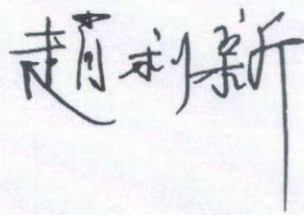 趙利新